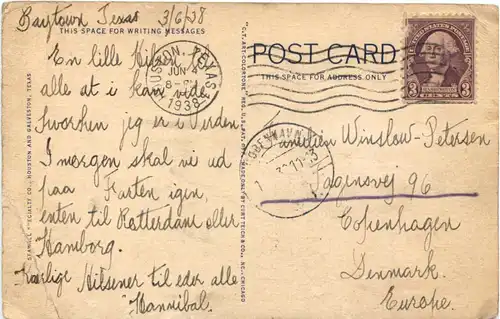 Baytown, Texas 3/6/38
THIS SPACE FOR WRITING MESSAGES
En lille Hilsen
alle at i kan vide
hvorhen jeg er i Verden
I morgen skal vi ud
paa Farten igen,
enten til Rotterdam eller
Hamborg.
Kærlige Hilsener til eder alle
Hannibal.
HOUSTON, TEXAS
JUN 4
1938
POST CARD
THIS SPACE FOR ADDRESS ONLY
UNITED STATES POSTAGE
3 3
CENTS
KØBENHAVN
Familien Winslow-Petersen
96
Copenhagen
Denmark.
Europe.
"C.T. ART-COLORTONE" REG. U.S. PAT. OFF. MADE ONLY BY CURT TEICH & CO., INC., CHICAGO
HOUSTON AND GALVESTON, TEXAS